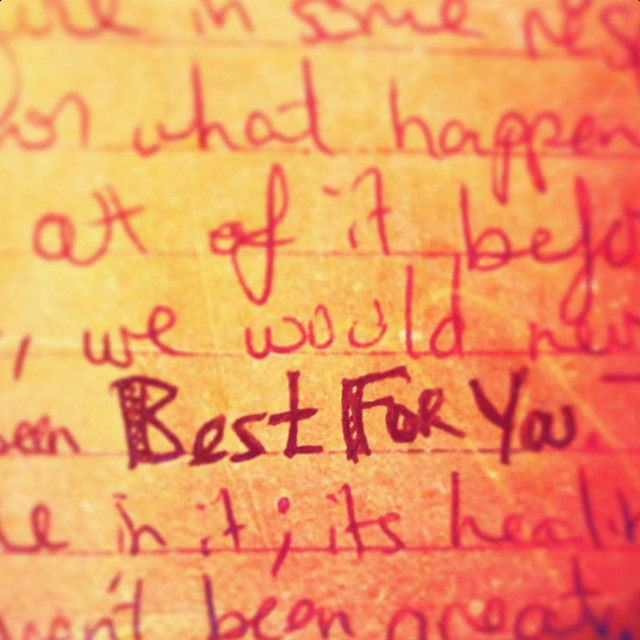 in some
what happen
att of it befo
, we would nev
een Best For You
le in it; its healt
been great